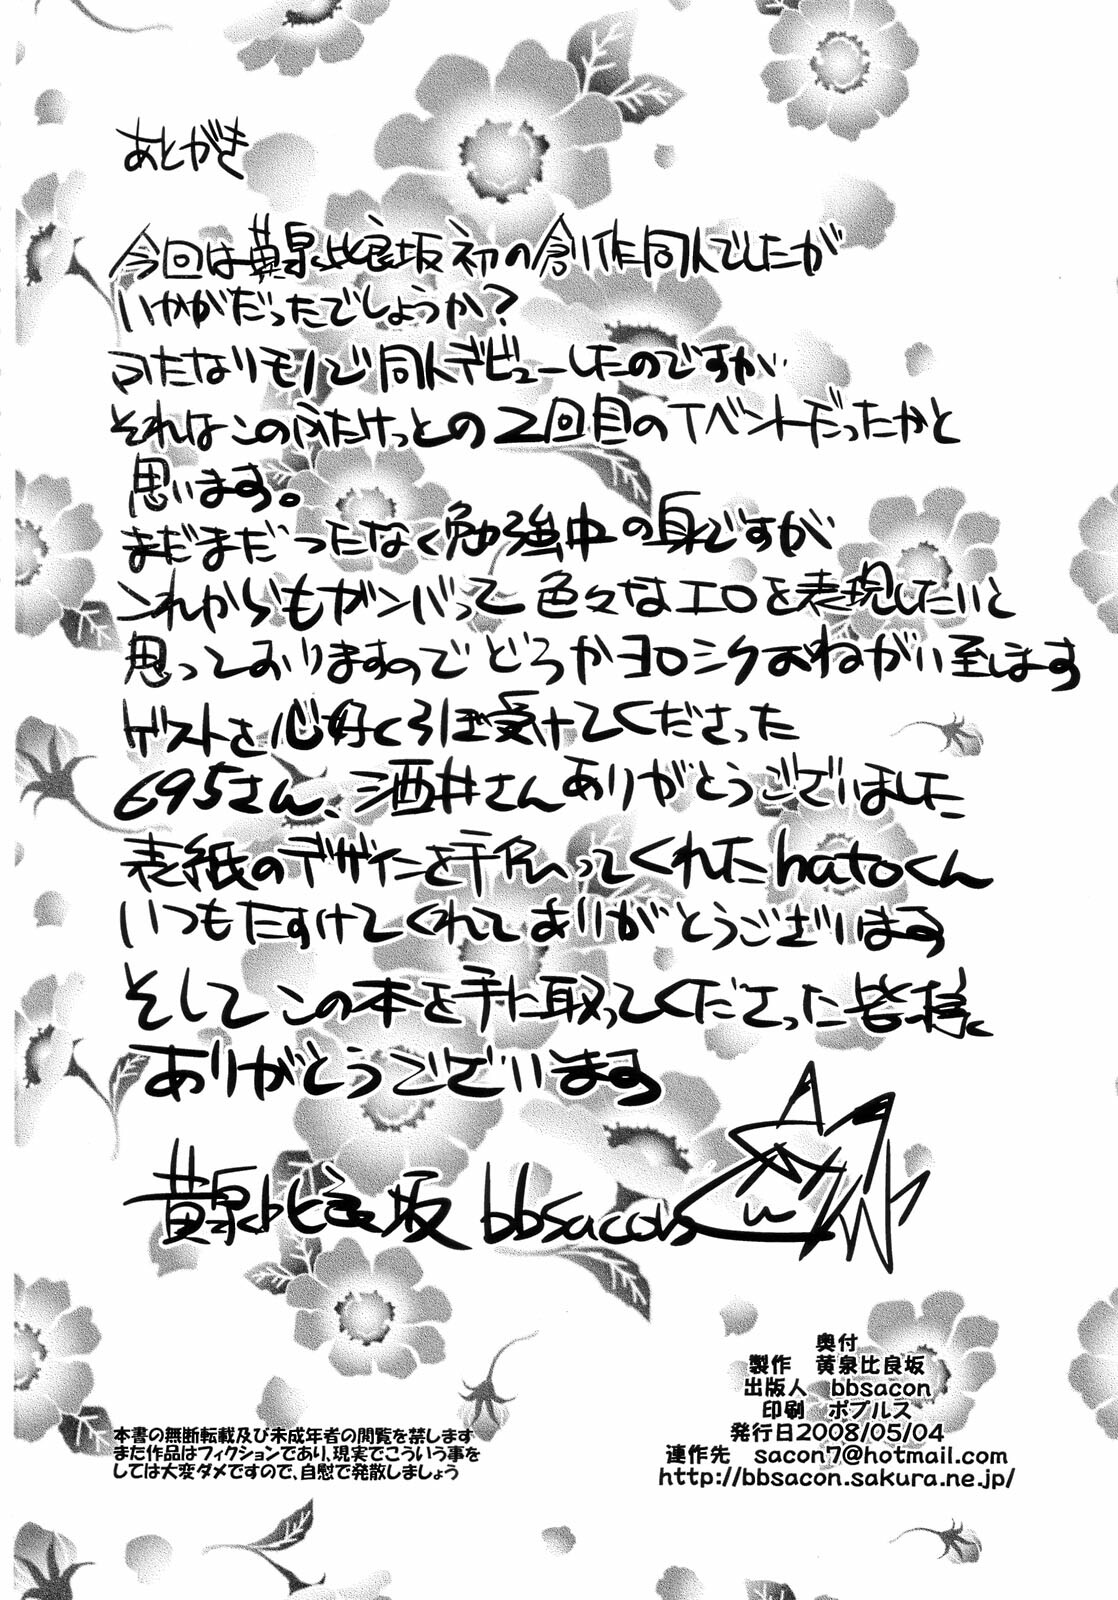 あとがき
今回は黄泉比良坂初の創作同人でしたが
いかがだったでしょうか？
ふたなりモノで同人デビューしたのですが
それはこのふたけっとの2回目のイベントだったかと
思います。
まだまだつたなく勉強中の身ですが
これからもガンバって色々なエロを表現したいと
思っておりますのでどうかヨロシクおねがい至します
ゲストを心好くひき受けてくださった
695さん、酒井さんありがとうございました
表紙のデザインを手伝ってくれたhatoくん
いつもたすけてくれてありがとうございます
そしてこの本を手に取ってくださった皆様
ありがとうございます
黄泉比良坂 bbsacon
奥付
製作　黄泉比良坂
出版人　bbsacon
印刷　ポプルス
発行日2008/05/04
連作先　sacon7@hotmail.com
http://bbsacon.sakura.ne.jp/
本書の無断転載及び未成年者の閲覧を禁します
また作品はフィクションであり、現実でこういう事を
しては大変ダメですので、自慰で発散しましょう